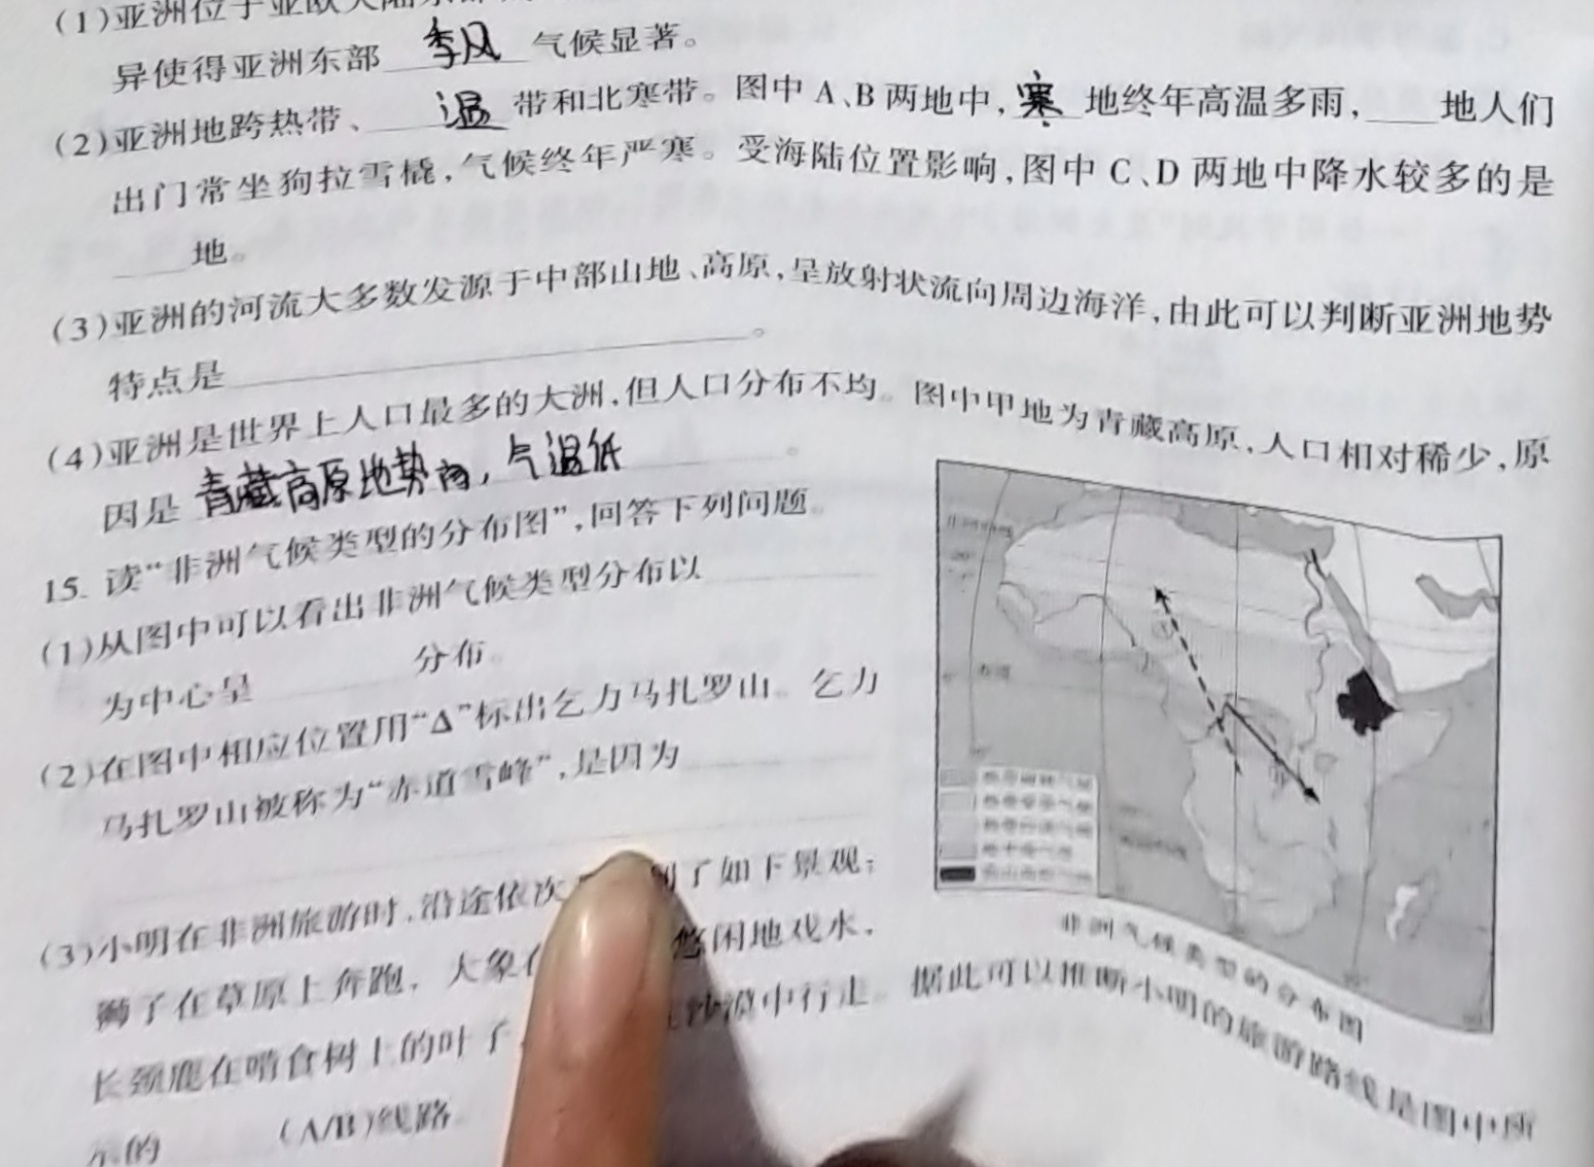 (1)亚洲位于亚欧大陆东部
异使得亚洲东部 季风 气候显著。
(2)亚洲地跨热带、 温 带和北寒带。图中A、B两地中, 寒 地终年高温多雨, 地人们
出门常坐狗拉雪橇,气候终年严寒。受海陆位置影响,图中C、D两地中降水较多的是
地。
(3)亚洲的河流大多数发源于中部山地、高原,呈放射状流向周边海洋,由此可以判断亚洲地势
特点是 。
(4)亚洲是世界上人口最多的大洲,但人口分布不均。图中甲地为青藏高原,人口相对稀少,原
因是 青藏高原地势高,气温低 。
15. 读“非洲气候类型的分布图”,回答下列问题。
(1)从图中可以看出非洲气候类型分布以
为中心呈 分布。
(2)在图中相应位置用“Δ”标出乞力马扎罗山。乞力
马扎罗山被称为“赤道雪峰”,是因为
(3)小明在非洲旅游时,沿途依次 到了如下景观:
狮子在草原上奔跑, 大象在 悠闲地戏水,
长颈鹿在啃食树上的叶子, 沙漠中行走。据此可以推断小明的旅游路线是图中所
示的 (A/B)线路。
赤道
非洲气候类型的分布图